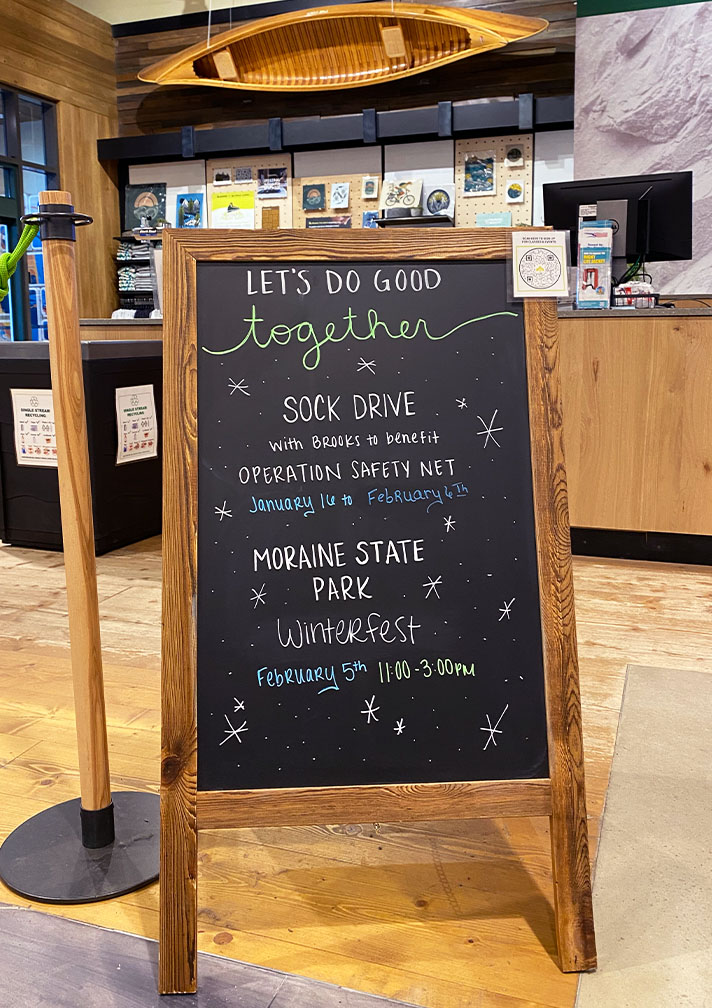 LET'S DO GOOD
together
SOCK DRIVE
with BROOKS to benefit
OPERATION SAFETY NET
January 16 to February 6th
MORAINE STATE
PARK
WinterFest
February 5th 11:00-3:00PM
SINGLE STREAM
RECYCLING
SINGLE STREAM
RECYCLING